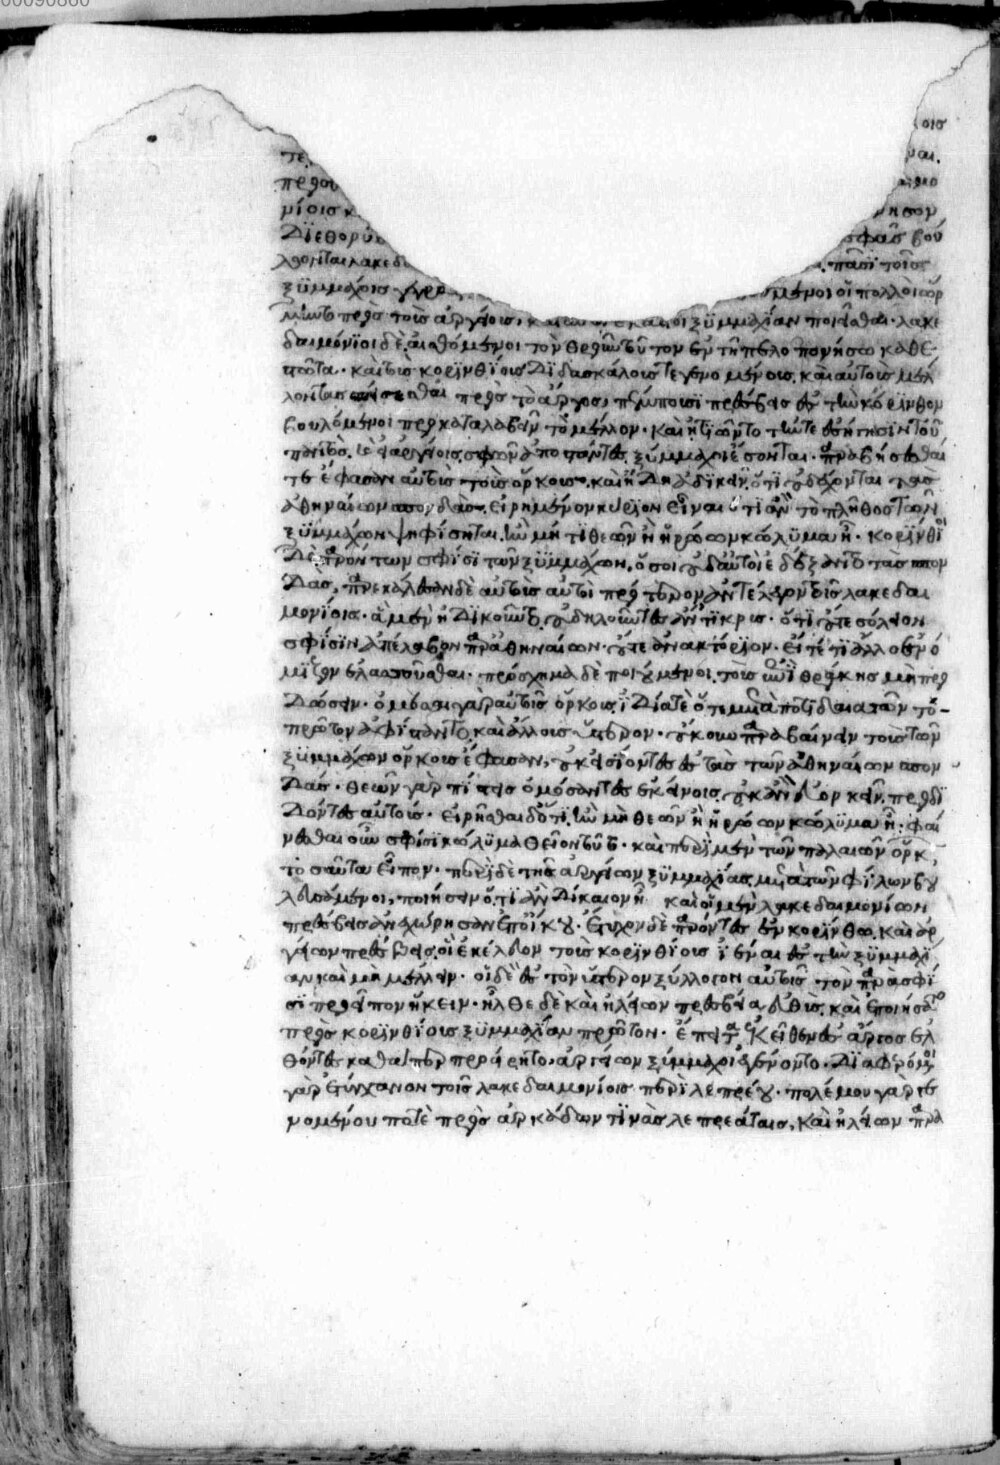 00090860
οισ
τε. ναι.
προσ
μίοισ κ νησον
διεθορύ σφᾶσ βού
λωνται λακεδ πᾶσι τοῖσ
ξυμμάχοισ γεγρ μενοι οἱ πολλοὶ ὥρ
μηντο πρὸσ τοὺσ ἀργείουσ, ξυμμαχίαν ποιεῖσθαι. λακε
δαιμόνϊοι δὲ αἰσθόμενοι τὸν θροῦν τοῦτον ἐν τῆ πελοποννήσω καθε
στῶτα. καὶ τοὺσ κορινθίουσ διδασκάλουσ τε γενομένουσ. καὶ αὐτοὺσ μέλ
λοντασ σπείσεσθαι πρὸσ τὸ ἄργοσ, πέμπουσι πρέσβεισ ἐσ τὴν κόρινθον
βουλόμενοι προκαταλαβεῖν τὸ μέλλον. καὶ ἠτιῶντο τήν τε ἐσήγησιν τοῦ
παντὸσ. καὶ εἰ ἀργείοισ σφῶν ἀποστάντεσ ξύμμαχοι ἔσονται. παραβήσεσθαί
τε ἔφασαν αὐτοὺσ τοὺσ ὅρκουσ. καὶ ἤδη ἀδικεῖν. ὅτι οὐ δέχονται τὰσ
ἀθηναίων σπονδάσ. εἰρημένον κύριον εἶναι ὅτι ἂν τὸ πλῆθοσ τῶν
ξυμμάχων ψηφίσηται. ἢν μή τι θεῶν ἢ ἡρώων κώλυμα ἦ. κορίνθιοι
δὲ παρόντων σφίσι τῶν ξυμμάχων, ὅσοι οὐδ' αὐτοὶ ἐδέξαντο τὰσ σπον
δάσ, παρεκάλεσαν δὲ αὐτοὺσ αὐτοὶ πρότερον ἀντέλεγον τοῖσ λακεδαι
μονίοισ. ἃ μὲν ἠδικοῦντο οὐ δηλοῦντεσ ἀντίκρισ. ὅτι οὔτε σόλιον
σφίσιν ἀπέλαβον παρ' ἀθηναίων. οὔτε ἀνακτόριον. εἴ τέ τι ἄλλο ἐνό
μιζον ἐλασσοῦσθαι. πρόσχημα δὲ ποιούμενοι τοὺσ ἐπὶ θράκησ μὴ προ
δώσειν. ὀμόσαι γὰρ αὐτοῖσ ὅρκουσ ἰδία τὲ ὅτε μετὰ ποτιδαιατῶν τὸ
πρῶτον ἀφίσταντο. καὶ ἄλλουσ ὕστερον. οὔκουν παραβαίνειν τοὺσ τῶν
ξυμμάχων ὅρκουσ ἔφασαν, οὐκ ἐσιόντεσ ἐσ τὰσ τῶν ἀθηναίων σπον
δάσ. θεῶν γὰρ πίστεισ ὀμόσαντεσ ἐκείνοισ οὐκ ἂν εὐορκεῖν προδι
δόντεσ αὐτούσ. εἰρῆσθαι δ' ὅτι ἢν μὴ θεῶν ἢ ἡρώων κώλυμα ἦ. φαί
νεσθαι οὖν σφίσι κώλυμα θεῖον τοῦτο. καὶ περὶ μὲν τῶν παλαιῶν ὅρκ
τοσαῦτα εἶπον. περὶ δὲ τῆσ ἀργείων ξυμμαχίασ μετὰ τῶν φίλων βου
λευσάμενοι, ποιήσειν ὅτι ἂν δίκαιον ἦ καὶ οἱ μὲν λακεδαιμονίων
πρέσβεισ ἀνεχώρησαν ἐπ' οἴκου. ἔτυχον δὲ παρόντεσ ἐν κορίνθω. καὶ ἀρ
γείων πρέσβεισ. οἳ ἐκέλευον τοὺσ κορινθίουσ ἰέναι ἐσ τὴν ξυμμαχί
αν καὶ μὴ μέλλειν. οἱ δὲ ἐσ τὸν ὕστερον ξύλλογον αὐτοῖσ τὸν παρὰ σφί
σι προεῖπον ἥκειν. ἦλθε δὲ καὶ ἠλείων πρεσβεία εὐθύσ. καὶ ἐποιήσατο
πρὸσ κορινθίουσ ξυμμαχίαν πρῶτον. ἔπειτα ἐκεῖθεν ἐσ ἄργοσ ἐλ
θόντεσ καθάπερ προείρητο. ἀργείων ξύμμαχοι ἐγένοντο. διαφερόμενοι
γὰρ ἐτύγχανον τοῖσ λακεδαιμονίοισ περὶ λεπρέου. πολέμου γὰρ γε
νομένου ποτὲ πρὸσ ἀρκάδων τινὰσ λεπρεάταισ, καὶ ἠλείων παρα